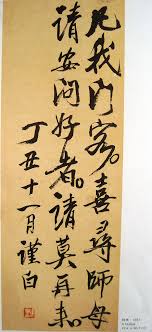 凡我门客。喜寻師母
請安问好者。請莫再来。
丁丑十一月謹白